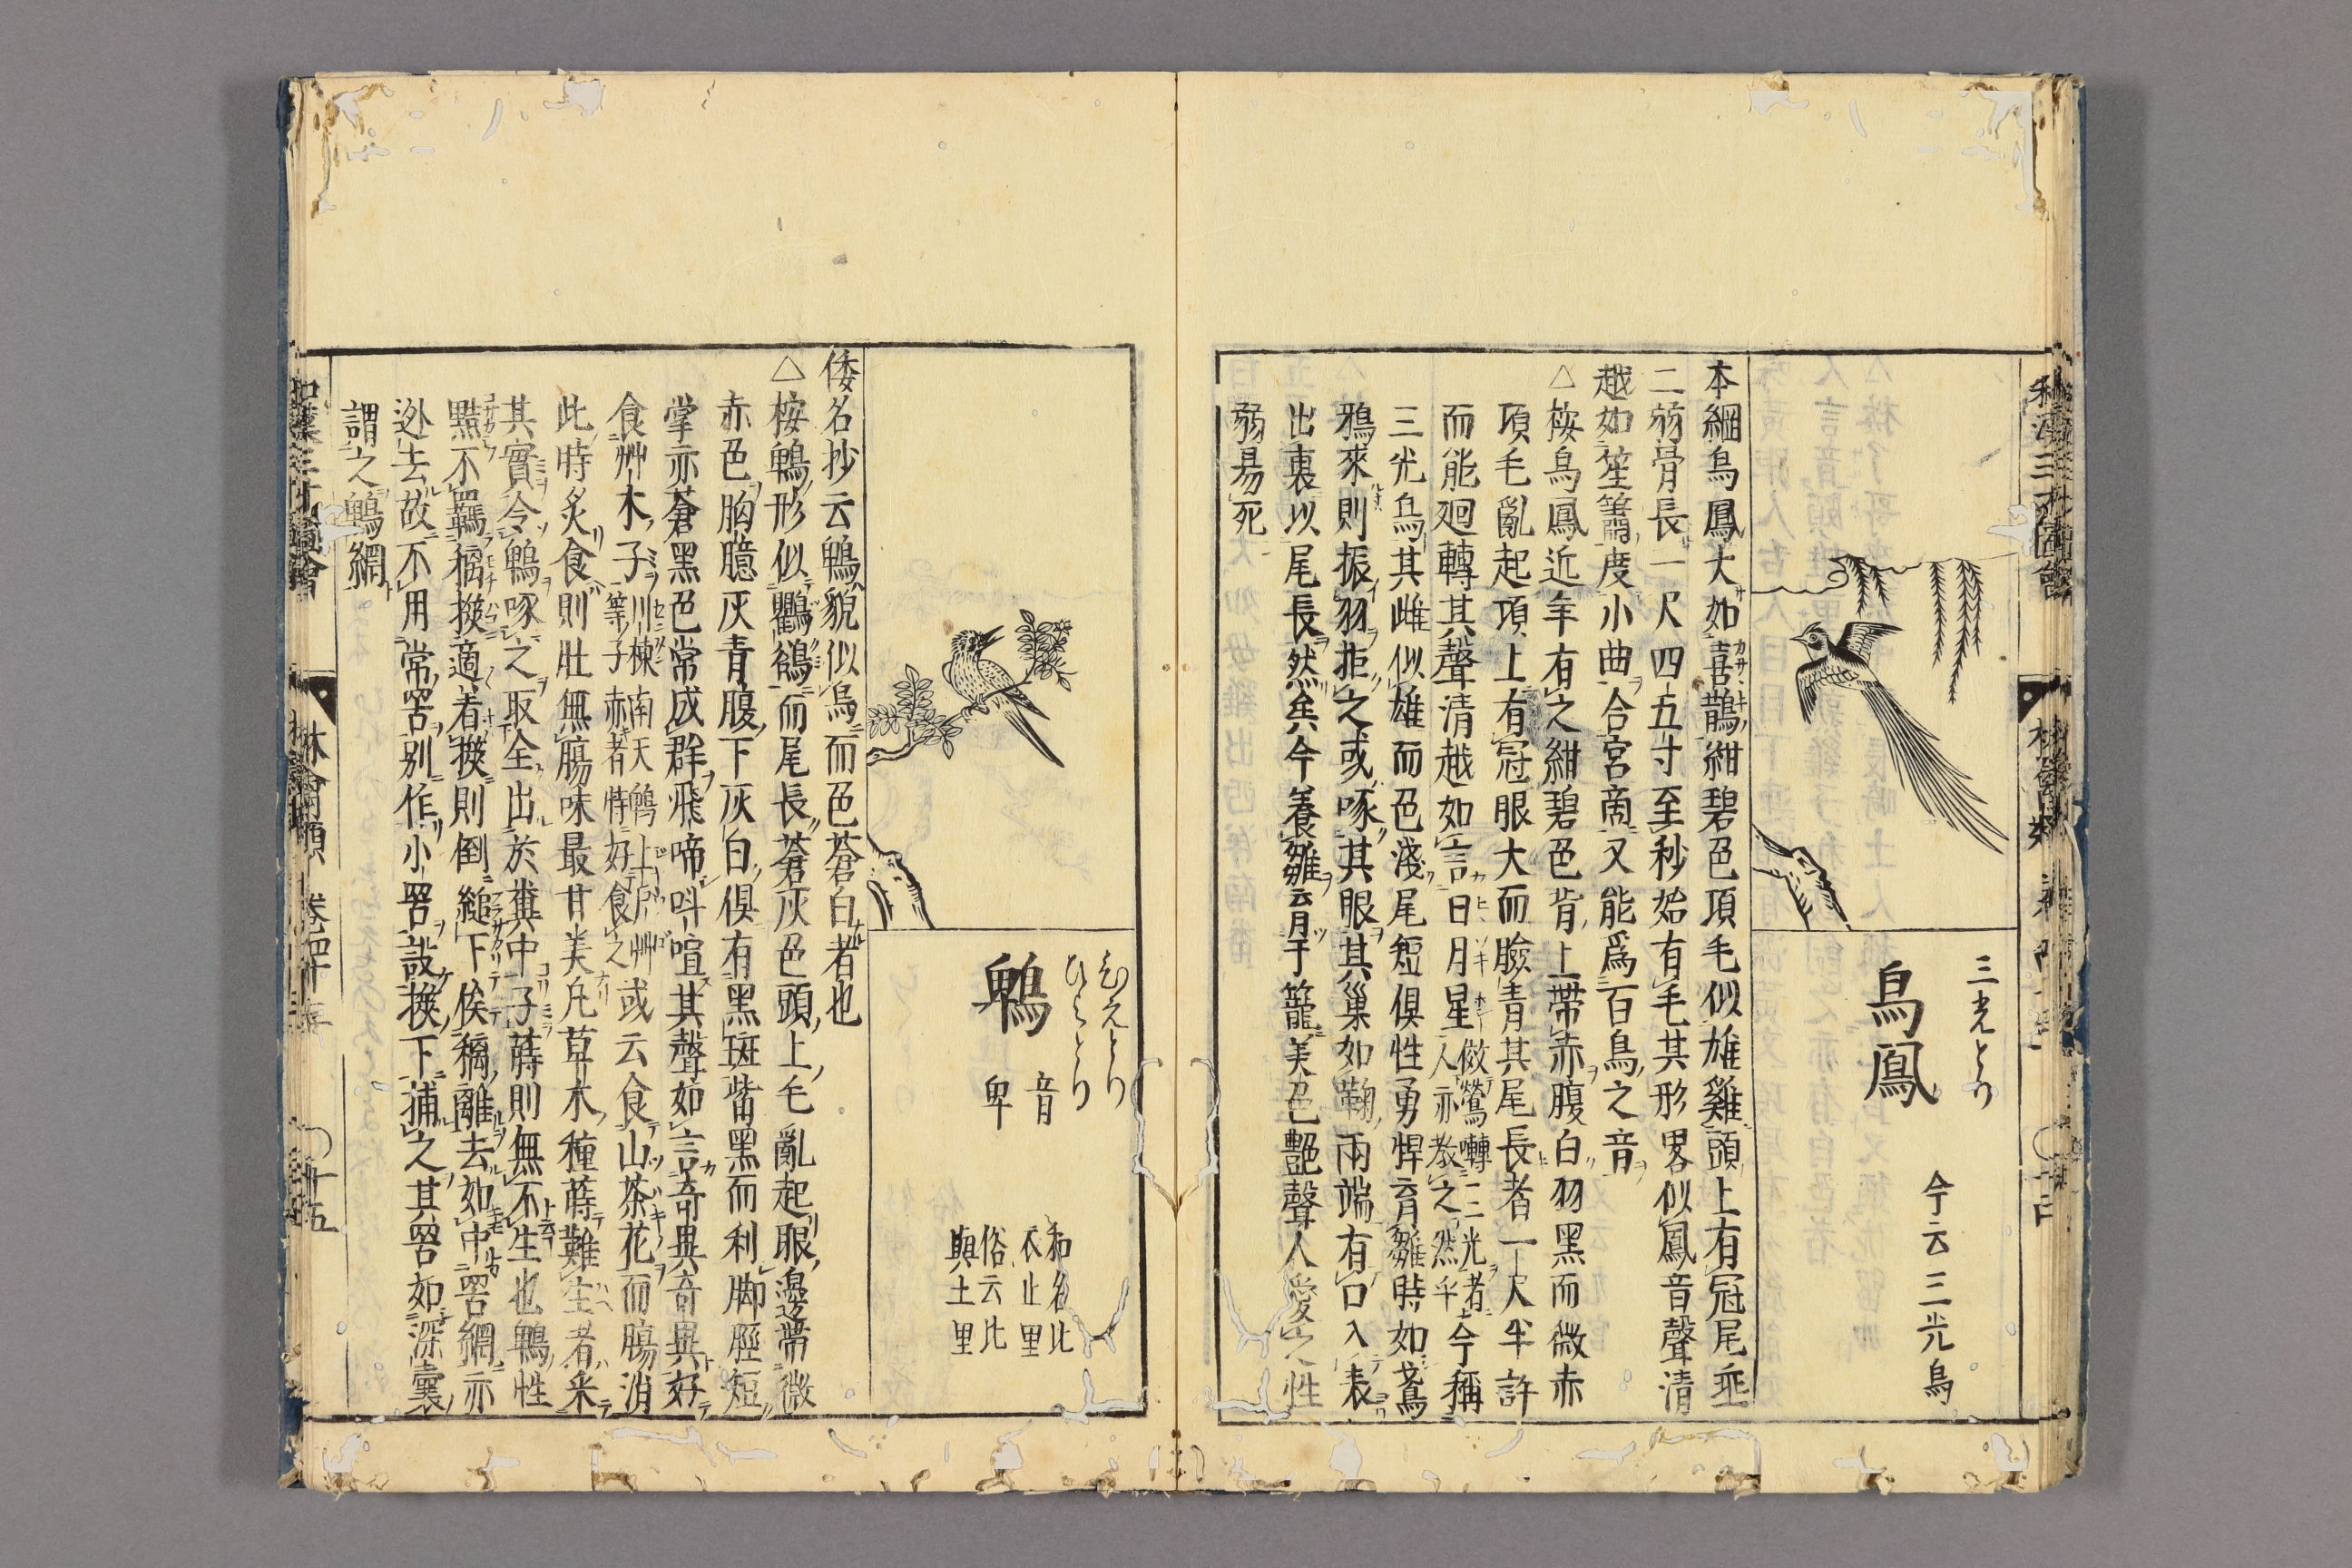 三光とり
烏鳳
今云三光鳥
本綱烏鳳大如喜鵲紺碧色項毛似雄雞頭上有冠尾垂
二弱骨長一尺四五寸至秒始有毛其形畧似鳳音聲清
越如笙簫度小曲合宮商又能爲百鳥之音
△桉烏鳳近年有之紺碧色背上帶赤腹白羽黑而微赤
項毛亂起項上有冠眼大而臉青其尾長者一尺半許
而能廻轉其聲清越如言日月星傚鶯囀二三光者人亦教之然乎今稱
三光鳥其雌似雄而色淺尾短俱性勇悍育雛時如鳶
鴉來則振羽拒之或啄其眼其巢如鞠兩端有口入表
出裏以尾長然矣今養雛云月于籠美色艷聲人愛之性
弱易死
ひえとり
ひよとり
鵯
音卑
和名比衣止里
俗云比與土里
倭名抄云鵯貌似烏而色蒼白者也
△桉鵯形似鸜鵒而尾長蒼灰色頭上毛亂起眼邊帶微
赤色胸臆灰青腹下灰白俱有黑斑觜黑而利脚脛短
掌亦蒼黑色常成群飛啼呌喧其聲如言奇異音與好
食艸木子川楝南天鵯上戸艸等子赤者特好食之或云食山茶花而腸消
此時炙食則肚無腸味最甘美凡草木種蒔難生者采
其實令鵯啄之取全出於糞中子蒔則無不生也鵯性
黠不羂搐擌適着擌則倒縋下俟稱離去如中罟網亦
迯去故不用常罟別作小罟設擌下捕之其罟如深囊
謂之鵯網
林禽類
十五